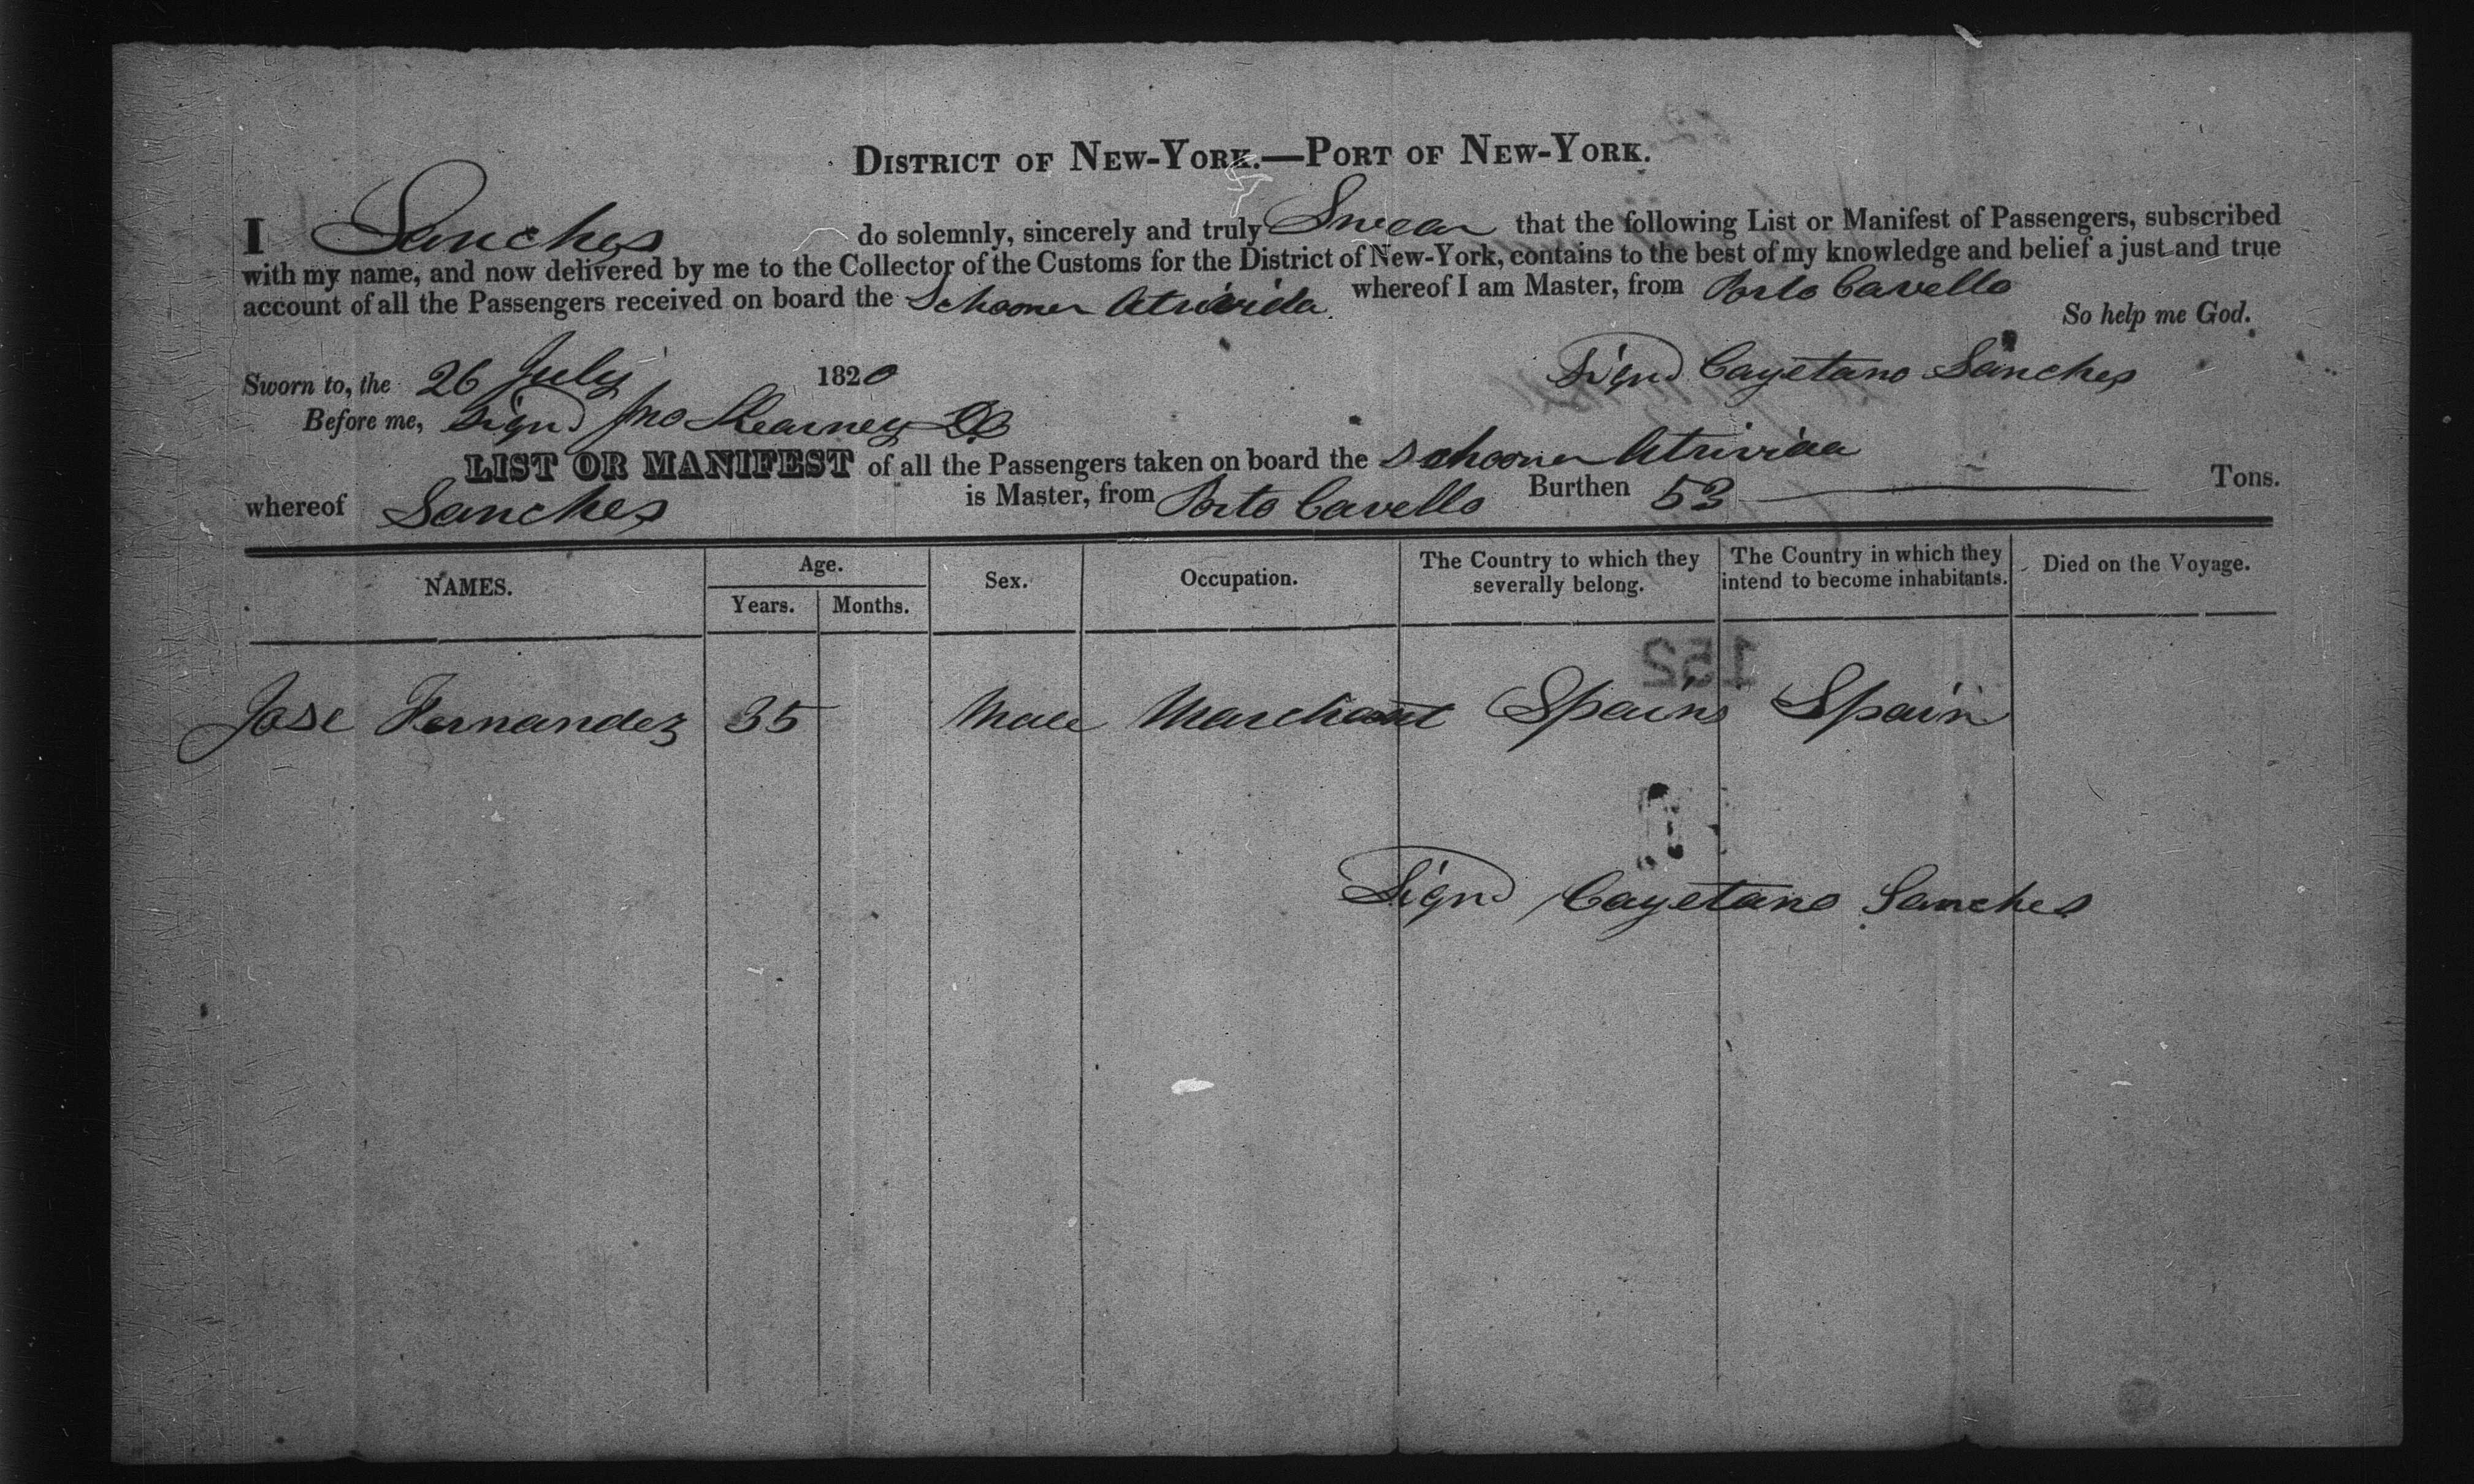 DISTRICT OF NEW-YORK.—PORT OF NEW-YORK.
I Sanches do solemnly, sincerely and truly Swear that the following List or Manifest of Passengers, subscribed
with my name, and now delivered by me to the Collector of the Customs for the District of New-York, contains to the best of my knowledge and belief a just and true
account of all the Passengers received on board the Schooner Atrivida whereof I am Master, from Porto Cavello
So help me God.
Sworn to, the 26 July 1820 Signd Cayetano Sanches
Before me, Signd Jno Kearney
LIST OR MANIFEST of all the Passengers taken on board the Schooner Atrivida
whereof Sanches is Master, from Porto Cavello Burthen 53 Tons.
NAMES. Age. Years. Months. Sex. Occupation. The Country to which they severally belong. The Country in which they intend to become inhabitants. Died on the Voyage.
152
Jose Fernandez 35 Male Marchant Spain Spain
Signd Cayetano Sanches